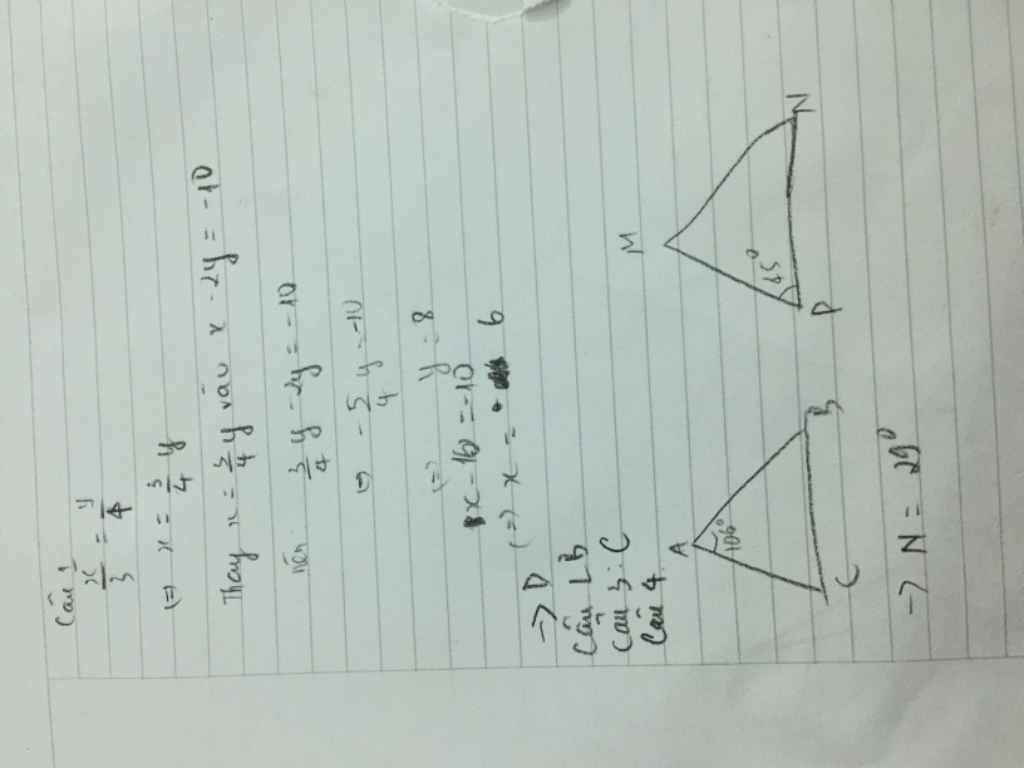 Câu 1
x/3 = y/4
(=) x = 3/4 y
Thay x = 3/4 y vào x - 2y = -10
nên 3/4 y - 2y = -10
(=) - 5/4 y = -10
(=) y = 8
x - 16 = -10
(=) x = 6
-> D
Câu 2 B
Câu 3: C
Câu 4
A 106° B C
M N P 45°
-> N = 29°